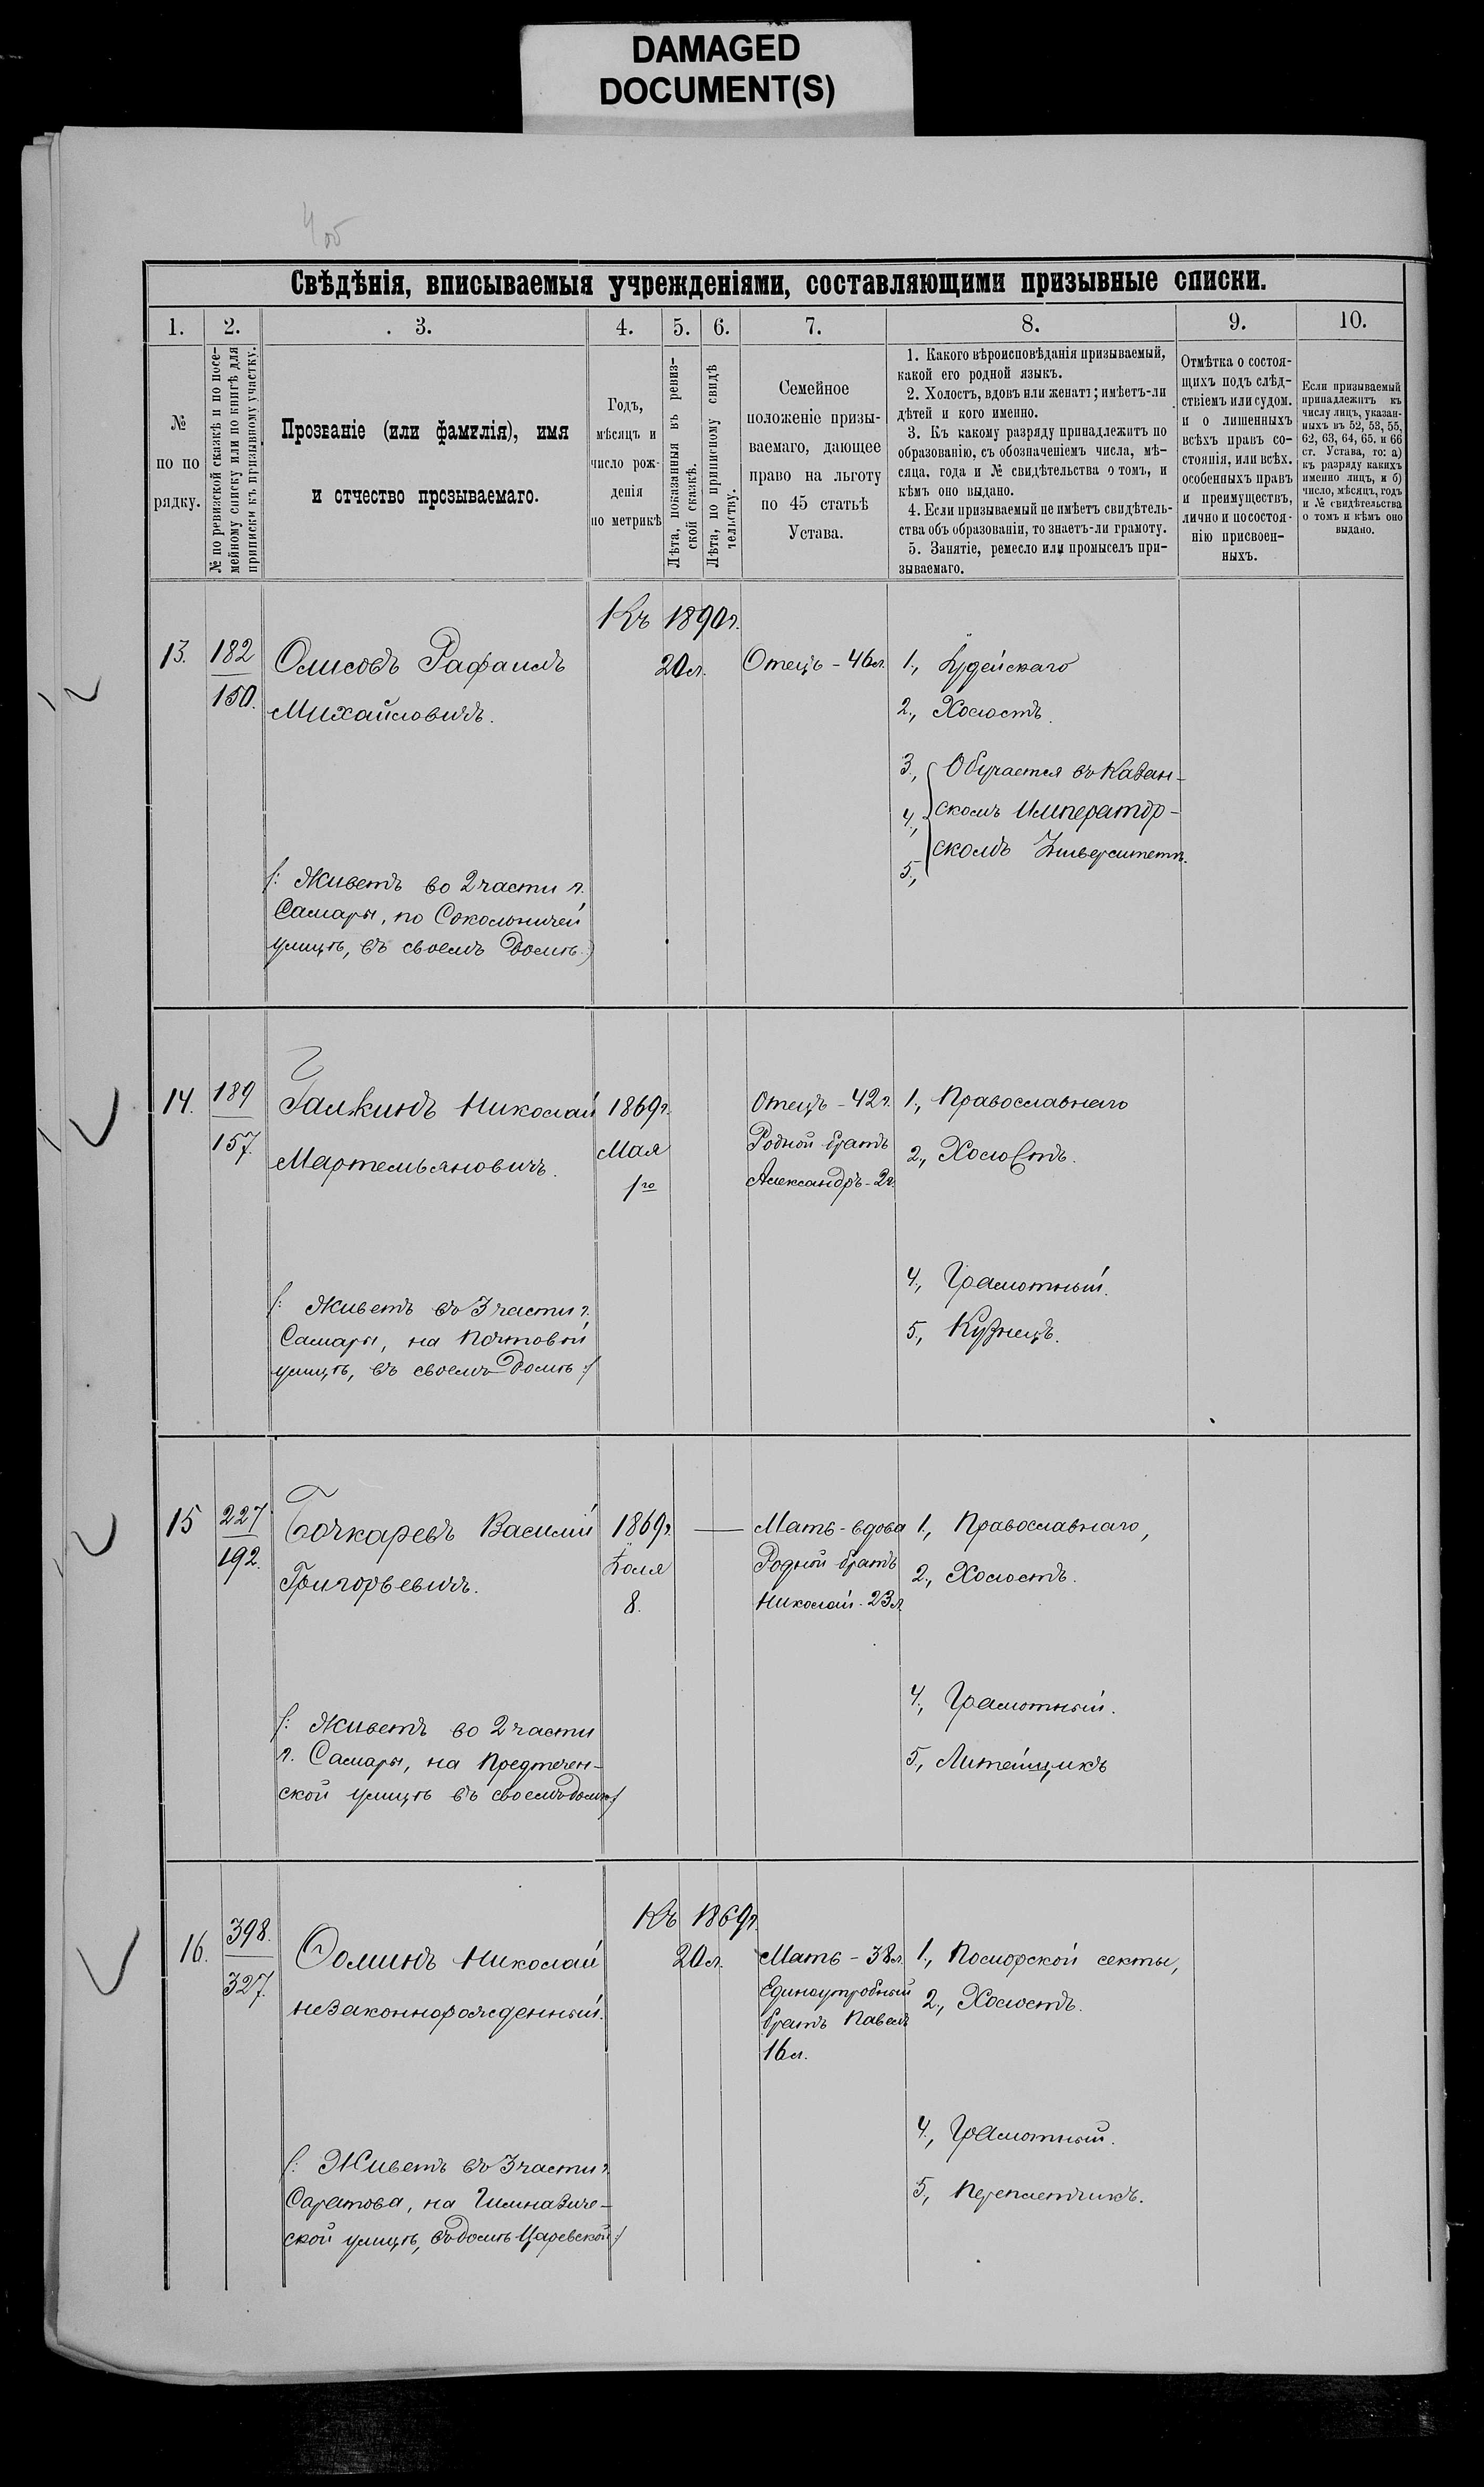 DAMAGED
DOCUMENT(S)
4 об
Свѣдѣнія, вписываемыя учрежденіями, составляющими призывные списки.
1.
2.
3.
4.
5.
6.
7.
8.
9.
10.
№
по по
рядку.
№ по ревизской сказкѣ и по посе-
мейному списку или по книгѣ для
приписки къ призывному участку.
Прозваніе (или фамилія), имя
и отчество прозываемаго.
Годъ,
мѣсяцъ и
число рож-
денія
по метрикѣ
Лѣта, показанныя въ ревиз-
ской сказкѣ.
Лѣта, по приписному свидѣ
тельству.
Семейное
положеніе призы-
ваемаго, дающее
право на льготу
по 45 статьѣ
Устава.
1. Какого вѣроисповѣданія призываемый,
какой его родной языкъ.
2. Холостъ, вдовъ или женатъ; имѣетъ-ли
дѣтей и кого именно.
3. Къ какому разряду принадлежитъ по
образованію, съ обозначеніемъ числа, мѣ-
сяца, года и № свидѣтельства о томъ, и
кѣмъ оно выдано.
4. Если призываемый не имѣетъ свидѣтель-
ства объ образованіи, то знаетъ-ли грамоту.
5. Занятіе, ремесло или промыселъ при-
зываемаго.
Отмѣтка о состоя-
щихъ подъ слѣд-
ствіемъ или судомъ.
и о лишенныхъ
всѣхъ правъ со-
стоянія, или всѣхъ
особенныхъ правъ
и преимуществъ,
лично и по состоя-
нію присвоен-
ныхъ.
Если призываемый
принадлежитъ къ
числу лицъ, указан-
ныхъ въ 52, 53, 55,
62, 63, 64, 65. и 66
ст. Устава, то: а)
къ разряду какихъ
именно лицъ, и б)
число, мѣсяцъ, годъ
и № свидѣтельства
о томъ и кѣмъ оно
выдано.
13.
182
150.
Рафаилъ
Михайловичъ.
(: Живетъ во 2 части г.
Самары, по Сокольничей
улицѣ, въ своемъ домѣ :)
Къ 1890 г.
20 л.
Отецъ - 46 л.
1., Іудейскаго
2., Холостъ.
3., Обучается въ Казан-
4., скомъ Император-
скомъ Университетѣ.
5.,
14.
189
157.
Галкинъ Николай
Мартемьяновичъ.
(: Живетъ въ 3 части г.
Самары, на Почтовой
улицѣ, въ своемъ домѣ :)
1869 г.
Мая
1го
Отецъ - 42 г.
Родной братъ
Александръ - 2 г.
1., Православнаго
2., Холостъ.
4., Грамотный.
5., Кузнецъ.
15
227
192.
Бочкаревъ Василій
Григорьевичъ.
(: Живетъ во 2 части
г. Самары, на Предтечен-
ской улицѣ въ своемъ домѣ :)
1869 г.
Іюля
8.
Мать - вдова
Родной братъ
Николай - 23 л.
1., Православнаго,
2., Холостъ.
4., Грамотный.
5., Литейщикъ
16.
398.
327.
Николай
незаконнорожденный.
(: Живетъ въ 3 части г.
Саратова, на Гимназиче-
ской улицѣ, въ домѣ Царевской :)
Къ 1869 г.
20 л.
Мать - 38 л.
Единоутробный
братъ Павелъ
16 л.
1., Поморской секты,
2., Холостъ.
4., Грамотный.
5., Переплетчикъ.